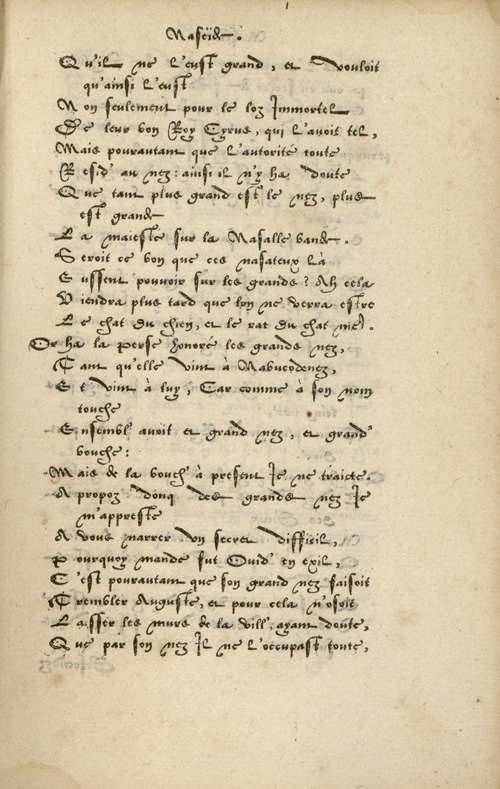 Naseïde.
Qu'il ne l'eust grand, et vouloit
qu'ainsi l'eust
Non seulement pour le loz Immortel
De leur bon Roy Cyrus, qui l'avoit tel,
Mais pourautant que l'autorité toute
Resid' au nez: ainsi il n'y ha doute
Que tant plus grand est le nez, plus
est grande
La maieste sur la Nasalle bande.
Seroit ce bon que ces nasateux là
Eussent pouvoir sur les grands? Ah cela
Viendra plus tard que lon ne verra estre
Le chat du chien, et le rat du chat
Or ha la Perse honoré les grands nez,
Tant qu'elle vint à Nabucodenez,
Et vint à luy, Car comme à son nom
touche
Ensembl' avoit et grand nez, et grand'
bouche:
Mais de la bouch' à present Je ne traicte.
A propoz donq des grands nez Je
m'appreste
A vous narrer un secret difficil,
Pourquoy mandé fut Ovid' en exil,
C'est pourautant que son grand nez faisoit
Trembler Auguste, et pour cela n'osoit
Laisser les murs de la vill', ayant doute,
Que par son nez Il ne l'occupast toute,